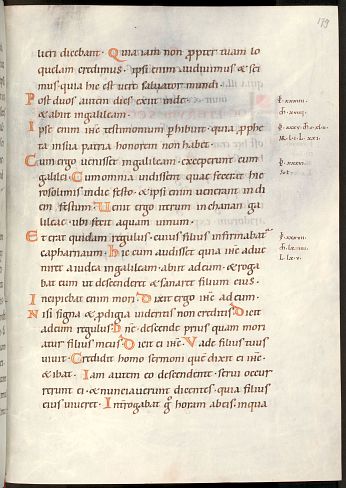 179
lieri dicebant · Quia iam non ppter tuam lo
quelam credimus · ipsi enim audiuimus & sci
mus · quia hic est uere saluator mundi ·
Post duos autem dies exiit inde ·
& abiit ingalileam ·
Ipse enim ihc testimonium phibuit · quia ppheta
insua patria honorem non habet ·
Cum ergo uenisset ingalileam · exceperunt eum
galilei · Cum omnia uidissent quae fecerat hie
rosolimis indie festo · & ipsi enim uenerant indi
em festum · Uenit ergo iterum inchanan ga
lileae · ubi fecit aquam uinum ·
Et erat quidam regulus · cuius filius infirmabat
capharnaum · Hic cum audisset quia ihc adue
niret aiudea ingalileam · abiit adeum · & roga
bat eum ut descenderet & sanaret filium eius ·
Incipiebat enim mori · Dixit ergo ihc adeum ·
Nisi signa & pdigia uideritis non creditis · Dicit
adeum regulus · Dne · descende prius quam mori
atur filius meus · Dicit ei ihc · Vade filius tuus
uiuit · Credidit homo sermoni que dixit ei ihc ·
& ibat · Iam autem eo descendente · serui occur
rerunt ei · & nunciauerunt dicentes · quia filius
eius uiueret · Interrogabat g horam abeis · inqua